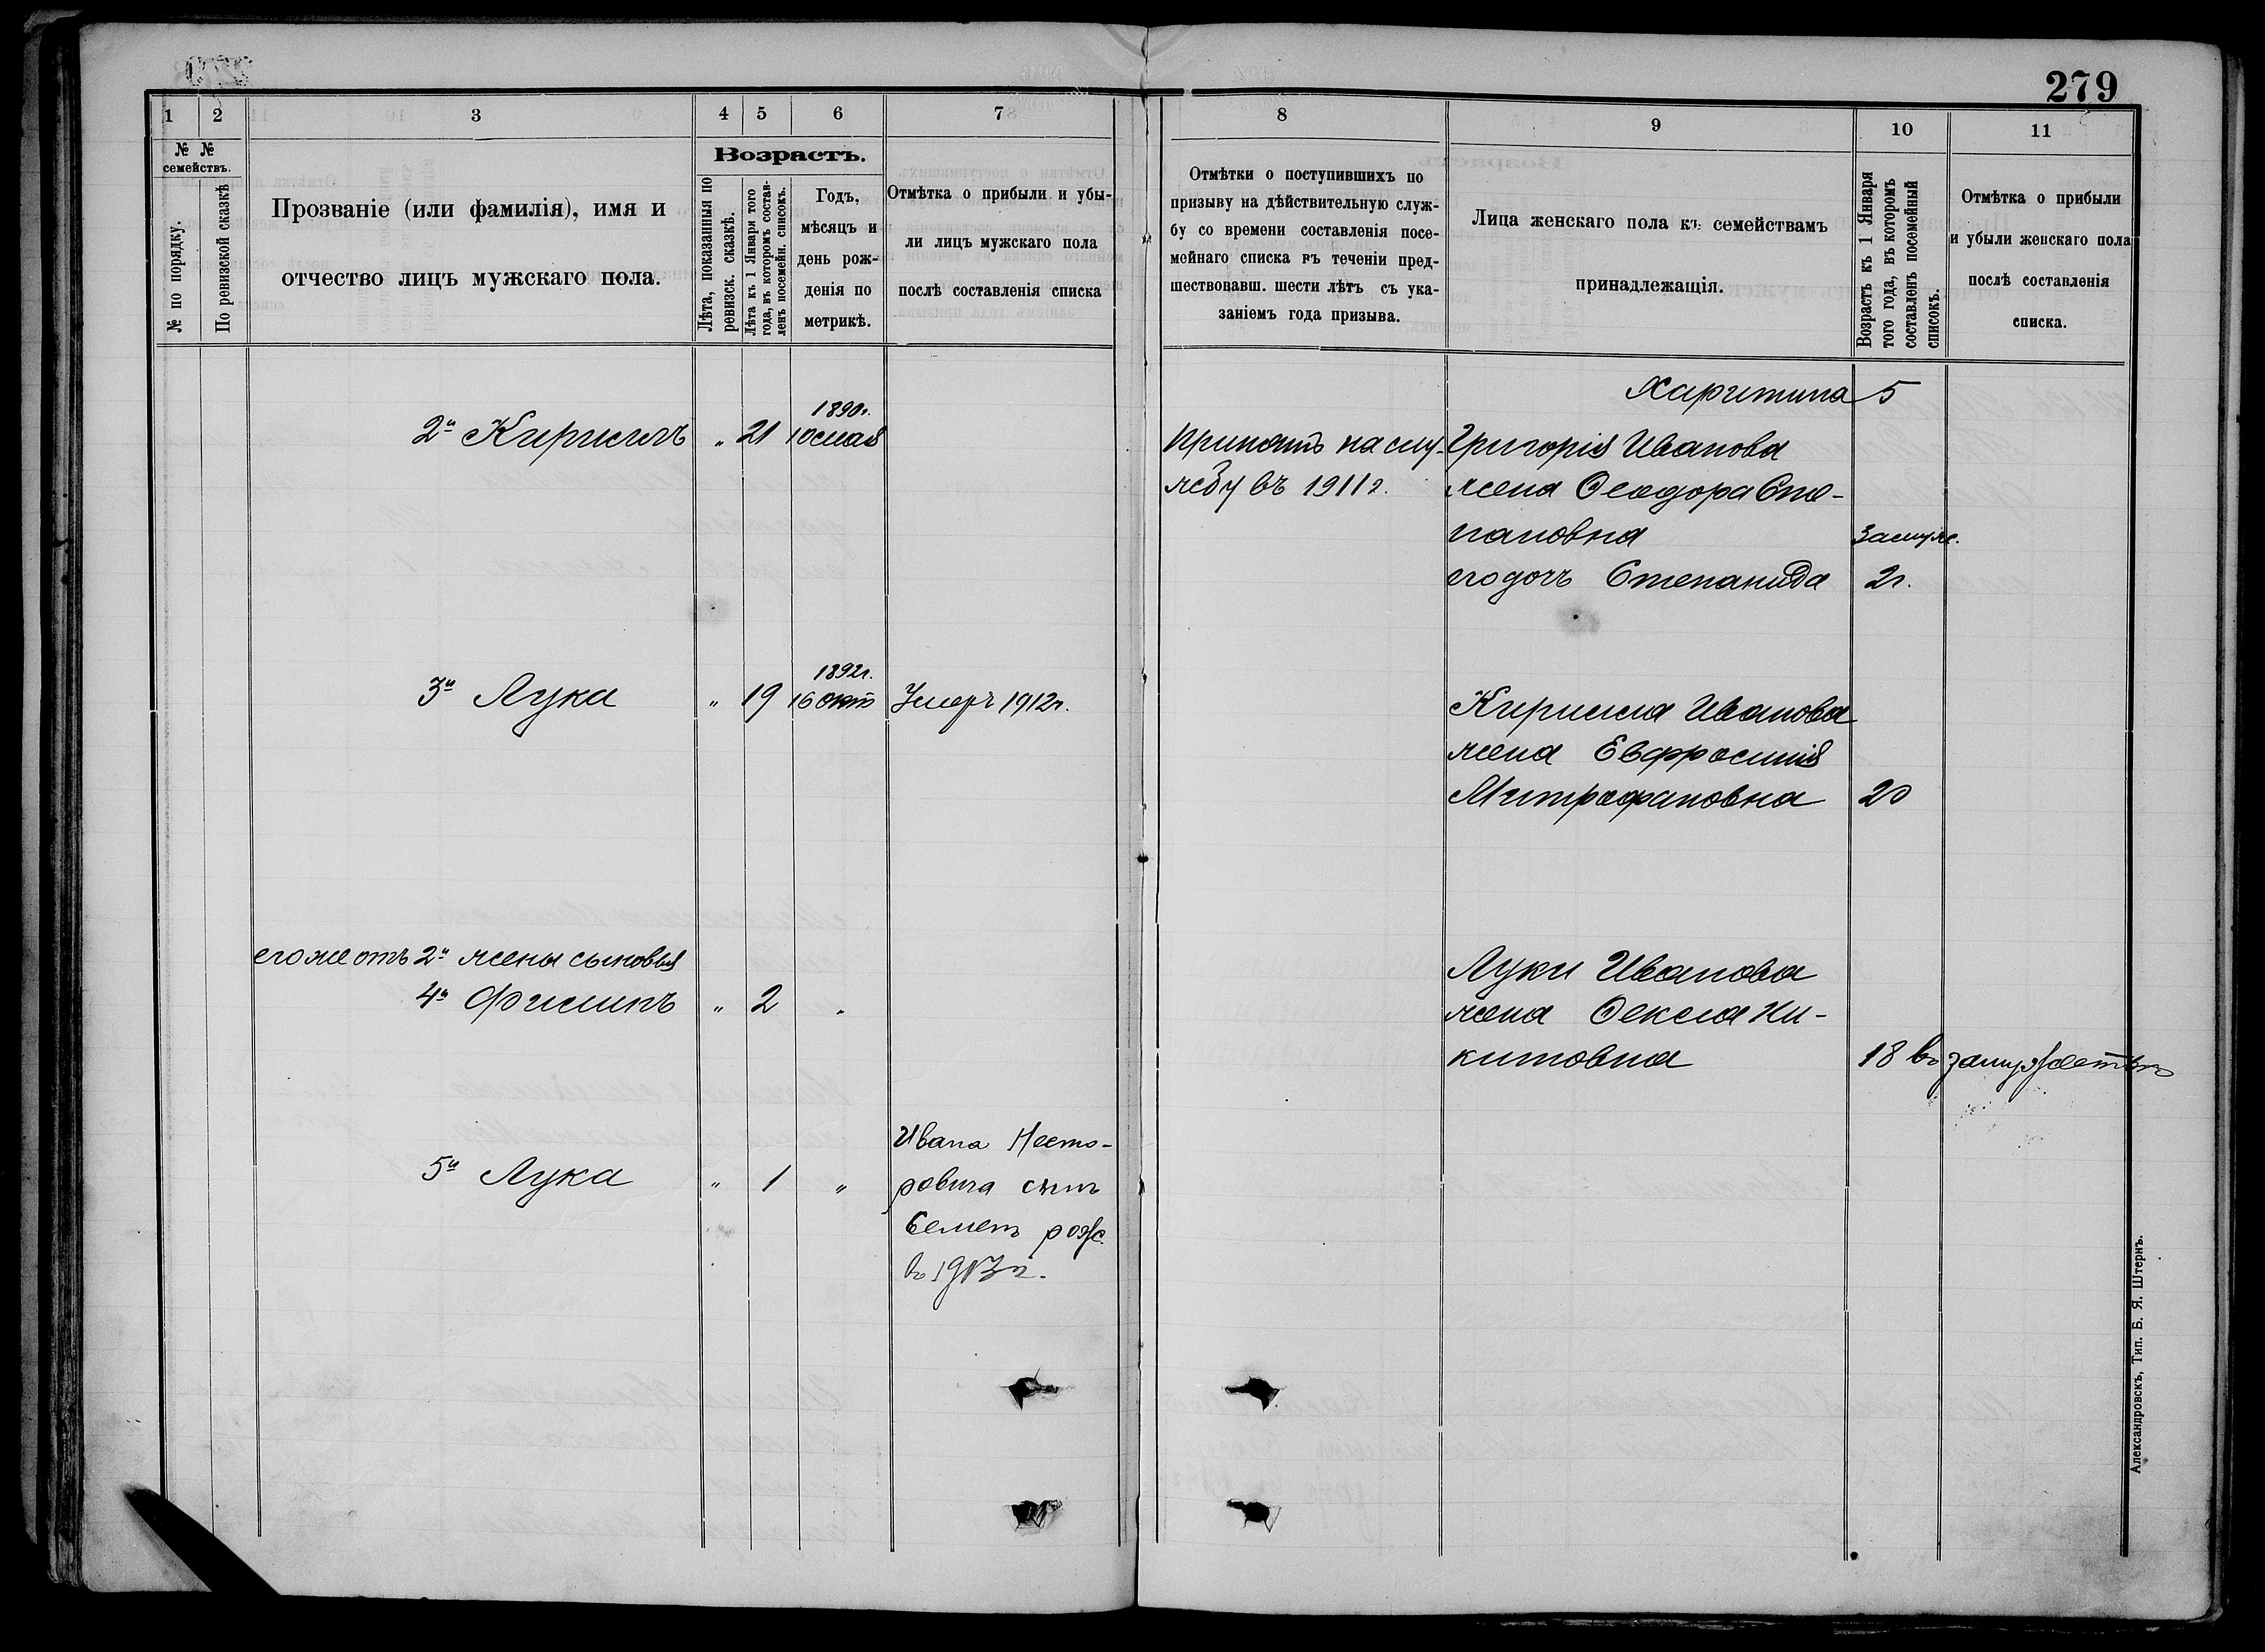 279
1 2 3 4 5 6 7
№ №
семействъ.
№ по порядку.
По ревизской сказкѣ
Прозваніе (или фамилія), имя и
отчество лицъ мужскаго пола.
Возрастъ.
Лѣта, показанныя по
ревизск. сказкѣ.
Лѣта къ 1 Января того
года, въ которомъ состав-
ленъ посемейн. списокъ.
Годъ,
мѣсяцъ и
день рож-
денія по
метрикѣ.
Отмѣтка о прибыли и убы-
ли лицъ мужскаго пола
послѣ составленія списка
1890г.
2й Кириллъ " 21 10 мая
1892г.
3й Лука " 19 16 окт Умеръ 1912г.
его же отъ 2й жены сыновья
4й Филипъ " 2 "
Ивана Несто-
5й Лука " 1 " ровича сынъ
Семенъ рож.
въ 1913г.
8 9 10 11
Отмѣтки о поступившихъ по
призыву на дѣйствительную служ-
бу со времени составленія посе-
мейнаго списка въ теченіи пред-
шествовавш. шести лѣтъ съ ука-
заніемъ года призыва.
Лица женскаго пола къ семействамъ
принадлежащія.
Возрастъ къ 1 Января
того года, въ которомъ
составленъ посемейный
списокъ.
Отмѣтка о прибыли
и убыли женскаго пола
послѣ составленія
списка.
Харитина 5
Принятъ на слу- Григорія Иванова
жбу въ 1911г. жена Ѳеодора Сте-
пановна замуж.
его дочь Степанида 2г.
Кирилла Иванова
жена Евфросинія
Митрофановна 20
Луки Иванова
жена Ѳекла Ни-
китовна 18 въ замужествѣ
Александровскъ, Тип. Б. Я. Штернъ.